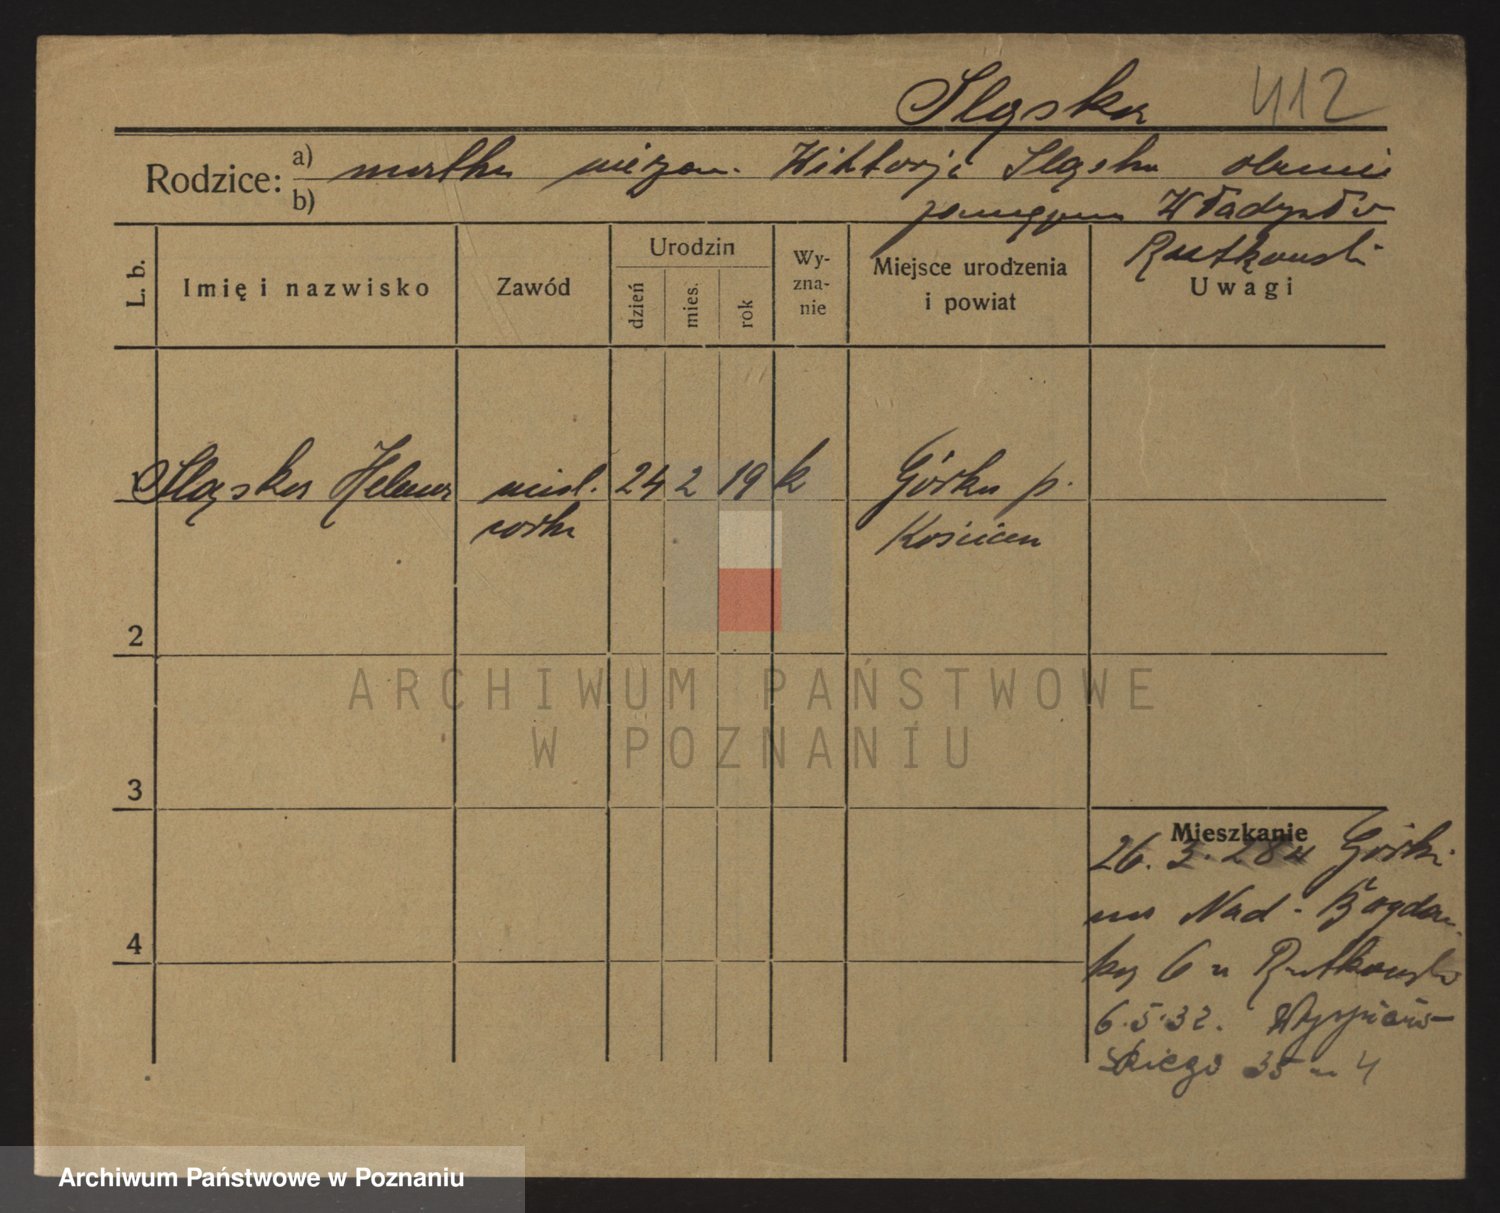 Śląska 412
Rodzice: a) matka niezam. Wiktorja Śląska obecnie
b) zamężna Władysław
Rutkowski
L. b. Imię i nazwisko Zawód Urodzin dzień mies. rok Wy-zna-nie Miejsce urodzenia i powiat Uwagi
1 Śląska Helena nieśl. 24 2 19 k Górka p.
córka Kościan
2
3
4
Mieszkanie
26. 3. 28 Górki
na Nad-Bogdan
ką 6 u Rutkowski
6.5.32. Wyspiańs-
kiego 35 m 4
ARCHIWUM PAŃSTWOWE
W POZNANIU
Archiwum Państwowe w Poznaniu